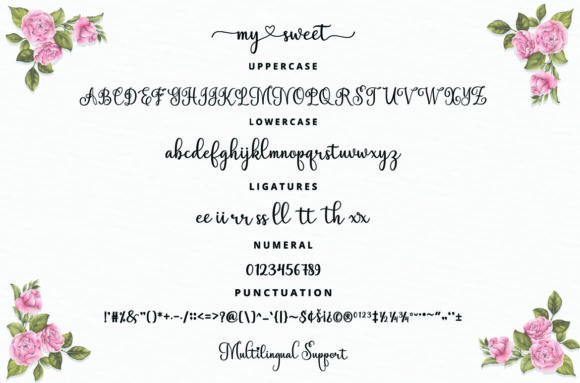 my sweet
UPPERCASE
ABCDEFGHIJKLMNOPQRSTUVWXYZ
LOWERCASE
abcdefghijklmnopqrstuvwxyz
LIGATURES
ee ii rr ss ll tt th xx
NUMERAL
0123456789
PUNCTUATION
Multilingual Support